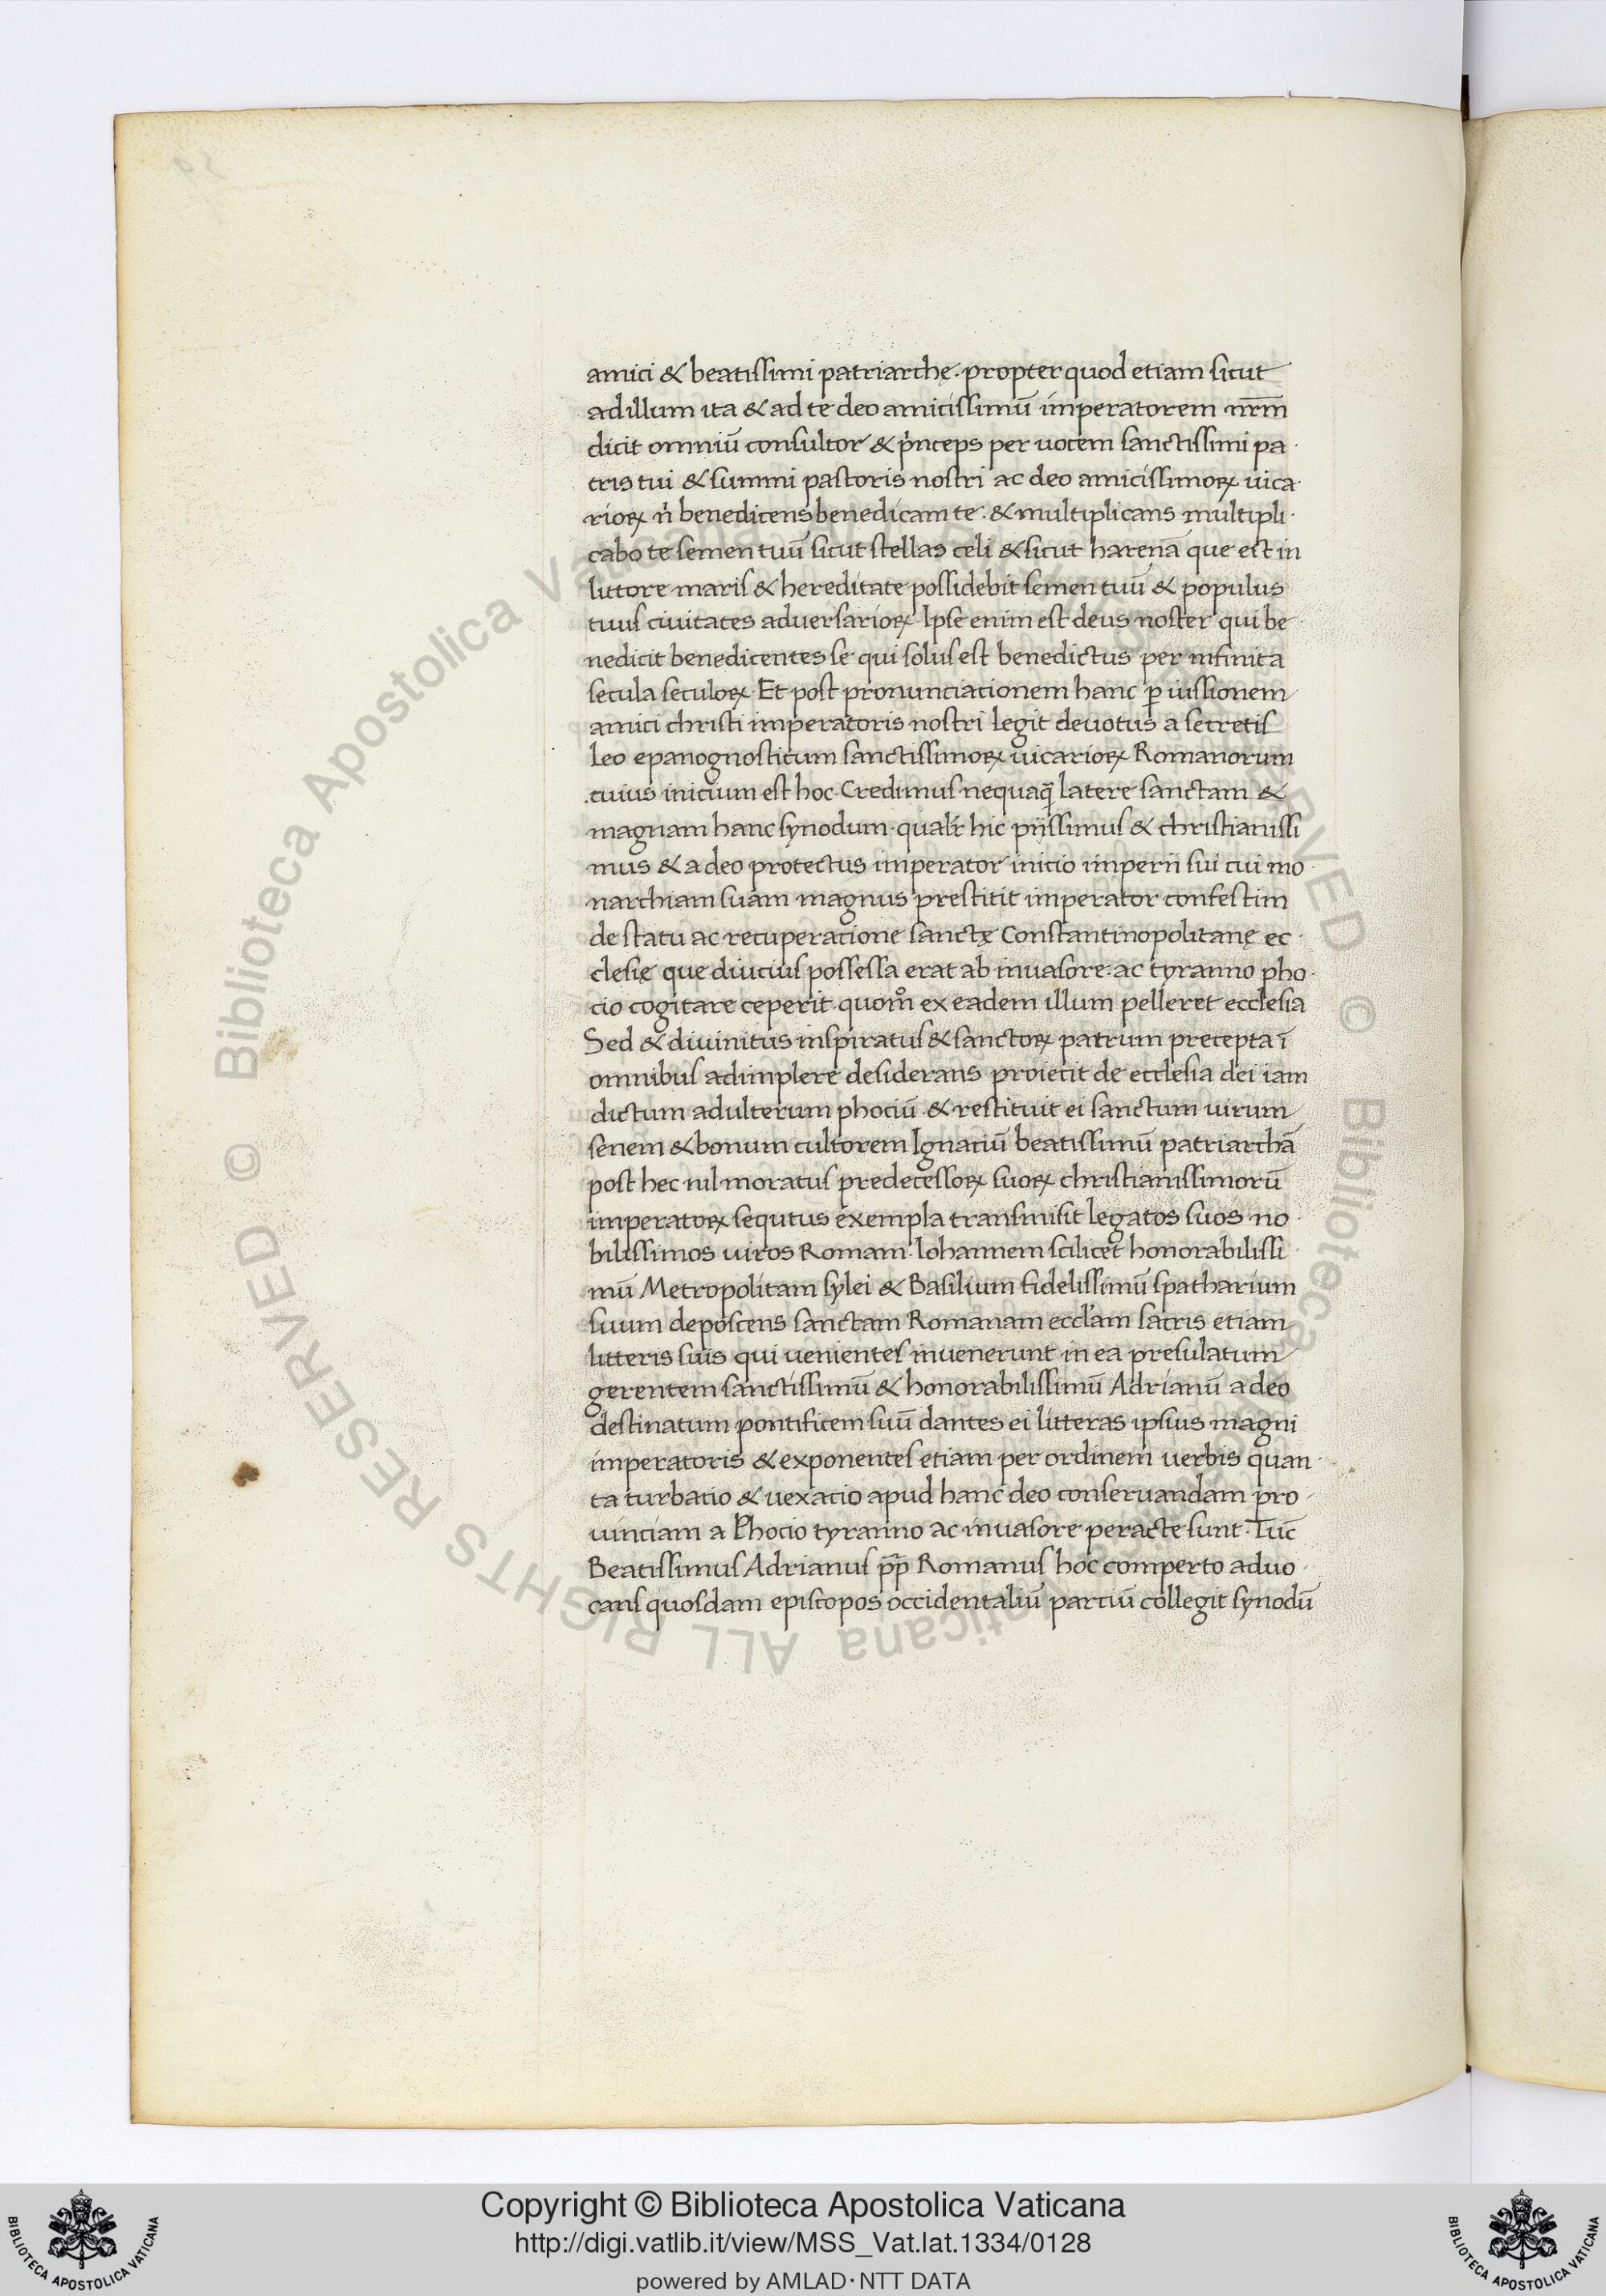 amici & beatissimi patriarchę. propter quod etiam sicut
ad illum ita & ad te deo amicissimū imperatorem nr̄m
dicit omniū consultor & pˡnceps per uocem sanctissimi pa
tris tui & summi pastoris nostri ac deo amicissimoꝝ uica
rioꝝ nˡ benedicens benedicam te. & multiplicans multipli
cabo te semen tuū sicut stellas celi & sicut harenā que est in
littore maris & hereditate possidebit semen tuū & populus
tuus ciuitates aduersarioꝝ. Ipse enim est deus noster qui be
nedicit benedicentes se qui solus est benedictus per infinita
secula seculoꝝ. Et post pronunciationem hanc ꝑ iussionem
amici christi imperatoris nostri legit deuotus a secretis
Leo epanognosticum sanctissimoꝝ uicarioꝝ Romanorum
cuius inicium est hoc. Credimus nequaq̄ latere sanctam &
magnam hanc synodum. qualr̄ hic pijssimus & christianissi
mus & a deo protectus imperator inicio imperii sui cui mo
narchiam suam magnus prestitit imperator confestim
de statu ac recuperatione sanctę Constantinopolitanę ec
clesię que diucius possessa erat ab inuasore. ac tyranno pho
cio cogitare ceperit. quomͦ ex eadem illum pelleret ecclesia
Sed & diuinitus inspiratus & sanctoꝝ patrum precepta ī
omnibus adimplere desiderans proiecit de ecclesia dei iam
dictum adulterum phociū & restituit ei sanctum uirum
senem & bonum cultorem Ignatiū beatissimū patriarchā
post hec nil moratus predecessoꝝ suoꝝ christianissimorū
imperatoꝝ sequtus exempla transmisit legatos suos no
bilissimos uiros Romam. Iohannem scilicet honorabilissi
mū Metropolitam sylei & Basilium fidelissimū spatharium
suum deposcens sanctam Romanam eccl̄am sacris etiam
litteris suis qui uenientes inuenerunt in ea presulatum
gerentem sanctissimū & honorabilissimū Adrianū a deo
destinatum pontificem suū dantes ei litteras ipsius magni
imperatoris & exponentes etiam per ordinem uerbis quan
ta turbatio & uexatio apud hanc deo conseruandam pro
uinciam a Phocio tyranno ac inuasore peracte sunt. Tūc
Beatissimus Adrianus pp̄ Romanus hoc comperto aduo
cans quosdam episcopos occidentaliū partiū collegit synodū
Copyright © Biblioteca Apostolica Vaticana
http://digi.vatlib.it/view/MSS_Vat.lat.1334/0128
powered by AMLAD·NTT DATA
BIBLIOTECA APOSTOLICA VATICANA
BIBLIOTECA APOSTOLICA VATICANA
© Biblioteca Apostolica Vaticana ALL RIGHTS RESERVED